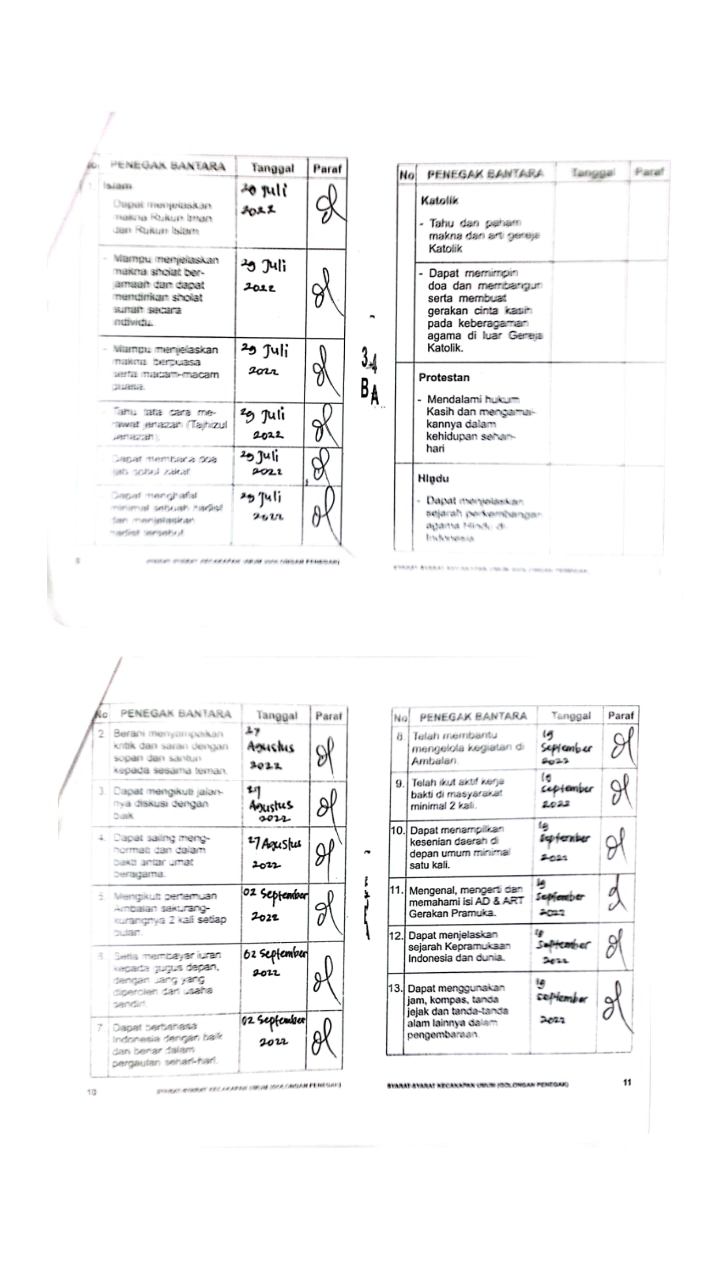 No PENEGAK BANTARA Tanggal Paraf
1. Islam
Dapat menjelaskan
makna Rukun Iman
dan Rukun Islam
20 Juli
2022
- Mampu menjelaskan
makna sholat ber-
jamaah dan dapat
mendirikan sholat
sunah secara
individu.
29 Juli
2022
- Mampu menjelaskan
makna berpuasa
serta macam-macam
puasa.
29 Juli
2022
- Tahu tata cara me-
rawat jenazah (Tajhizul
Jenazah).
29 Juli
2022
- Dapat membaca doa
ijab qobul zakat
29 Juli
2022
- Dapat menghafal
minimal sebuah hadist
dan menjelaskan
hadist tersebut
29 Juli
2022
SYARAT-SYARAT KECAKAPAN UMUM (GOLONGAN PENEGAK)
No PENEGAK BANTARA Tanggal Paraf
Katolik
- Tahu dan paham
makna dan arti gereja
Katolik
- Dapat memimpin
doa dan membangun
serta membuat
gerakan cinta kasih
pada keberagaman
agama di luar Gereja
Katolik.
Protestan
- Mendalami hukum
Kasih dan mengamal-
kannya dalam
kehidupan sehari-
hari
Hindu
- Dapat menjelaskan
sejarah perkembangan
agama Hindu di
Indonesia
SYARAT-SYARAT KECAKAPAN UMUM (GOLONGAN PENEGAK)
No PENEGAK BANTARA Tanggal Paraf
2. Berani menyampaikan
kritik dan saran dengan
sopan dan santun
kepada sesama teman.
27
Agustus
2022
3. Dapat mengikuti jalan-
nya diskusi dengan
baik
27
Agustus
2022
4. Dapat saling meng-
hormati dan dalam
bakti antar umat
beragama.
27 Agustus
2022
5. Mengikuti pertemuan
Ambalan sekurang-
kurangnya 2 kali setiap
bulan.
02 September
2022
6. Setia membayar iuran
kepada gugus depan,
dengan uang yang
diperoleh dari usaha
sendiri.
02 September
2022
7. Dapat berbahasa
Indonesia dengan baik
dan benar dalam
pergaulan sehari-hari.
02 September
2022
10 SYARAT-SYARAT KECAKAPAN UMUM (GOLONGAN PENEGAK)
No PENEGAK BANTARA Tanggal Paraf
8. Telah membantu
mengelola kegiatan di
Ambalan.
19
September
2022
9. Telah ikut aktif kerja
bakti di masyarakat
minimal 2 kali.
19
September
2022
10. Dapat menampilkan
kesenian daerah di
depan umum minimal
satu kali.
19
September
2022
11. Mengenal, mengerti dan
memahami isi AD & ART
Gerakan Pramuka.
19
September
2022
12. Dapat menjelaskan
sejarah Kepramukaan
Indonesia dan dunia.
19
September
2022
13. Dapat menggunakan
jam, kompas, tanda
jejak dan tanda-tanda
alam lainnya dalam
pengembaraan.
19
September
2022
SYARAT-SYARAT KECAKAPAN UMUM (GOLONGAN PENEGAK) 11